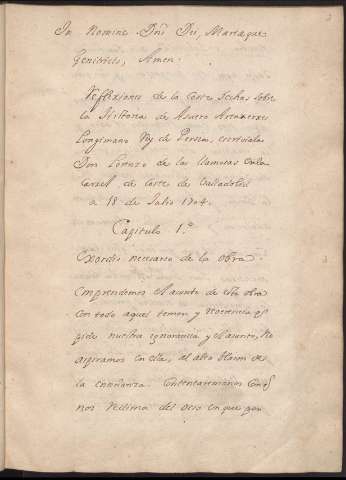 In Nomine Dñi Dei, Mariæque
Genitricis, Amen.
Reflexiones de la Corte fechas sobre
la Historia de Asuero Artaxerxes
Longimano Rey de Persia, escrivialas
Don Lorenzo de las llamosas en la
Carzel de Corte de Valladolid
a 18 de Julio 1704.
Capitulo 1.º
Exordio necesario de la obra.
Emprendemos el asunto de esta obra
con todo aquel temor, y reverencia q̃
pide nuestra ignorancia, y el asunto, No
aspiramos en ella, al alto blason de
la enseñanza. Contentaremonos con q̃
nos redima del ocio en que